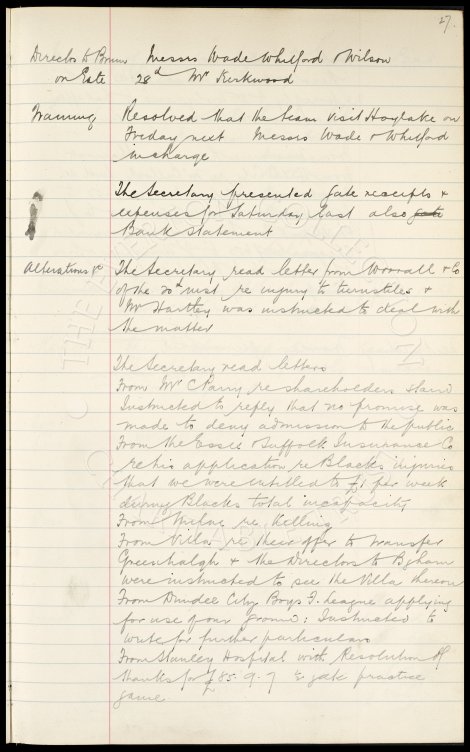 27.
Directors to B'ham Messrs Wade Whitford & Wilson
on Gate 28d Mr Kirkwood
Training Resolved that the team visit Hoylake on
Friday next Messrs Wade & Whitford
in charge
The Secretary presented gate receipts &
expenses for Saturday last also gate
Bank statement
Alterations &c The Secretary read letter from Worrall & Co
of the 20th inst re injury to turnstiles &
Mr Hartley was instructed to deal with
the matter
The Secretary read letters
From Mr C Parry re shareholders stand
Instructed to reply that no promise was
made to deny admission to the public
From the Essex & Suffolk Insurance Co
re his application re Blacks injuries
that we were entitled to £1 per week
during Blacks total incapacity
From re
From Villa re their offer to transfer
Greenhalgh & the Directors to B'ham
were instructed to see the Villa thereon
From Dundee City Boys F. League applying
for use of our ground: Instructed to
write for further particulars
From Stanley Hospital with Resolution of
thanks for £85.9.7 gate practice
game